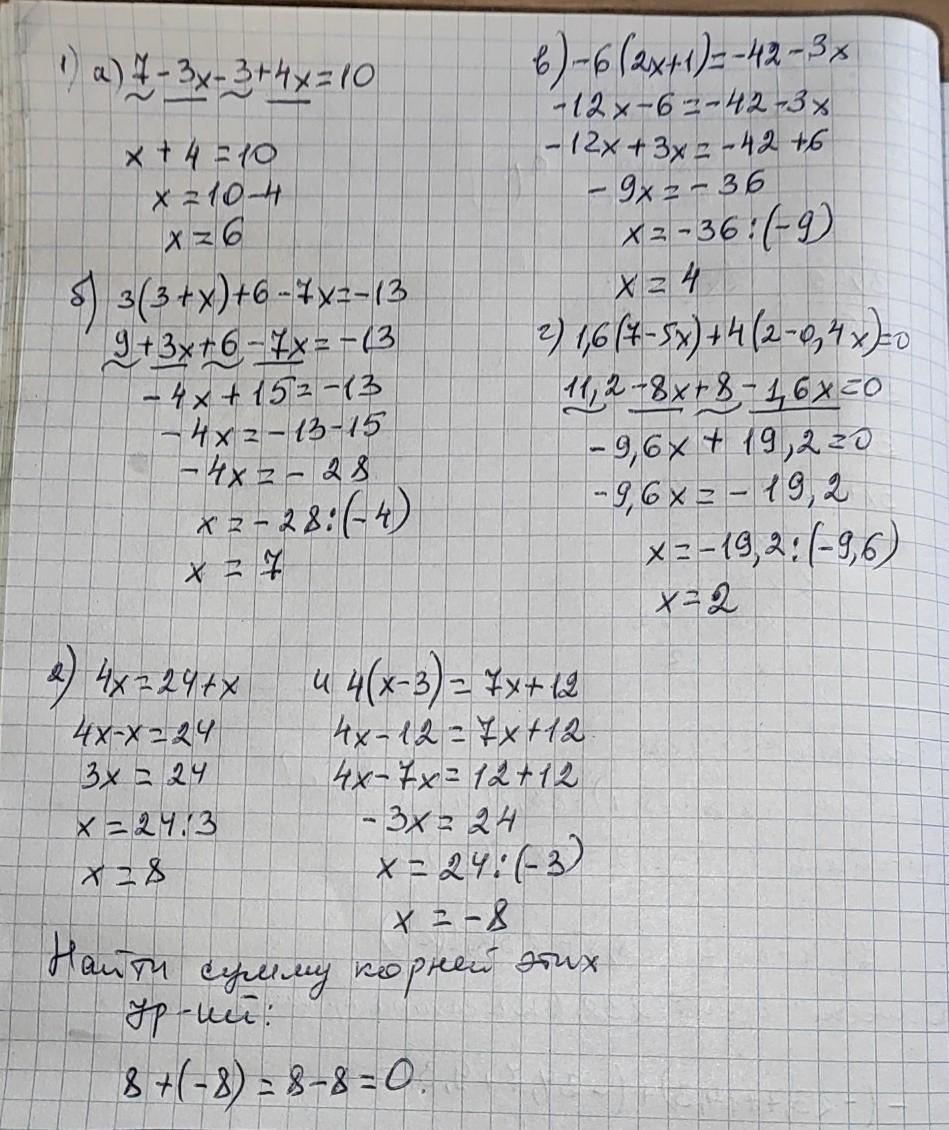 1) а) 7 - 3x - 3 + 4x = 10
x + 4 = 10
x = 10 - 4
x = 6
б) 3(3 + x) + 6 - 7x = -13
9 + 3x + 6 - 7x = -13
-4x + 15 = -13
-4x = -13 - 15
-4x = - 28
x = - 28 : (-4)
x = 7
в) -6(2x+1) = -42 - 3x
-12x - 6 = -42 - 3x
-12x + 3x = -42 + 6
- 9x = - 36
x = -36 : (-9)
x = 4
г) 1,6(7-5x) + 4(2-0,4x) = 0
11,2 - 8x + 8 - 1,6x = 0
-9,6x + 19,2 = 0
-9,6x = - 19,2
x = -19,2 : (-9,6)
x = 2
2) 4x = 24 + x
4x - x = 24
3x = 24
x = 24 : 3
x = 8
и 4(x-3) = 7x + 12
4x - 12 = 7x + 12
4x - 7x = 12 + 12
-3x = 24
x = 24 : (-3)
x = -8
Найти сумму корней этих
ур-ий:
8 + (-8) = 8 - 8 = 0.